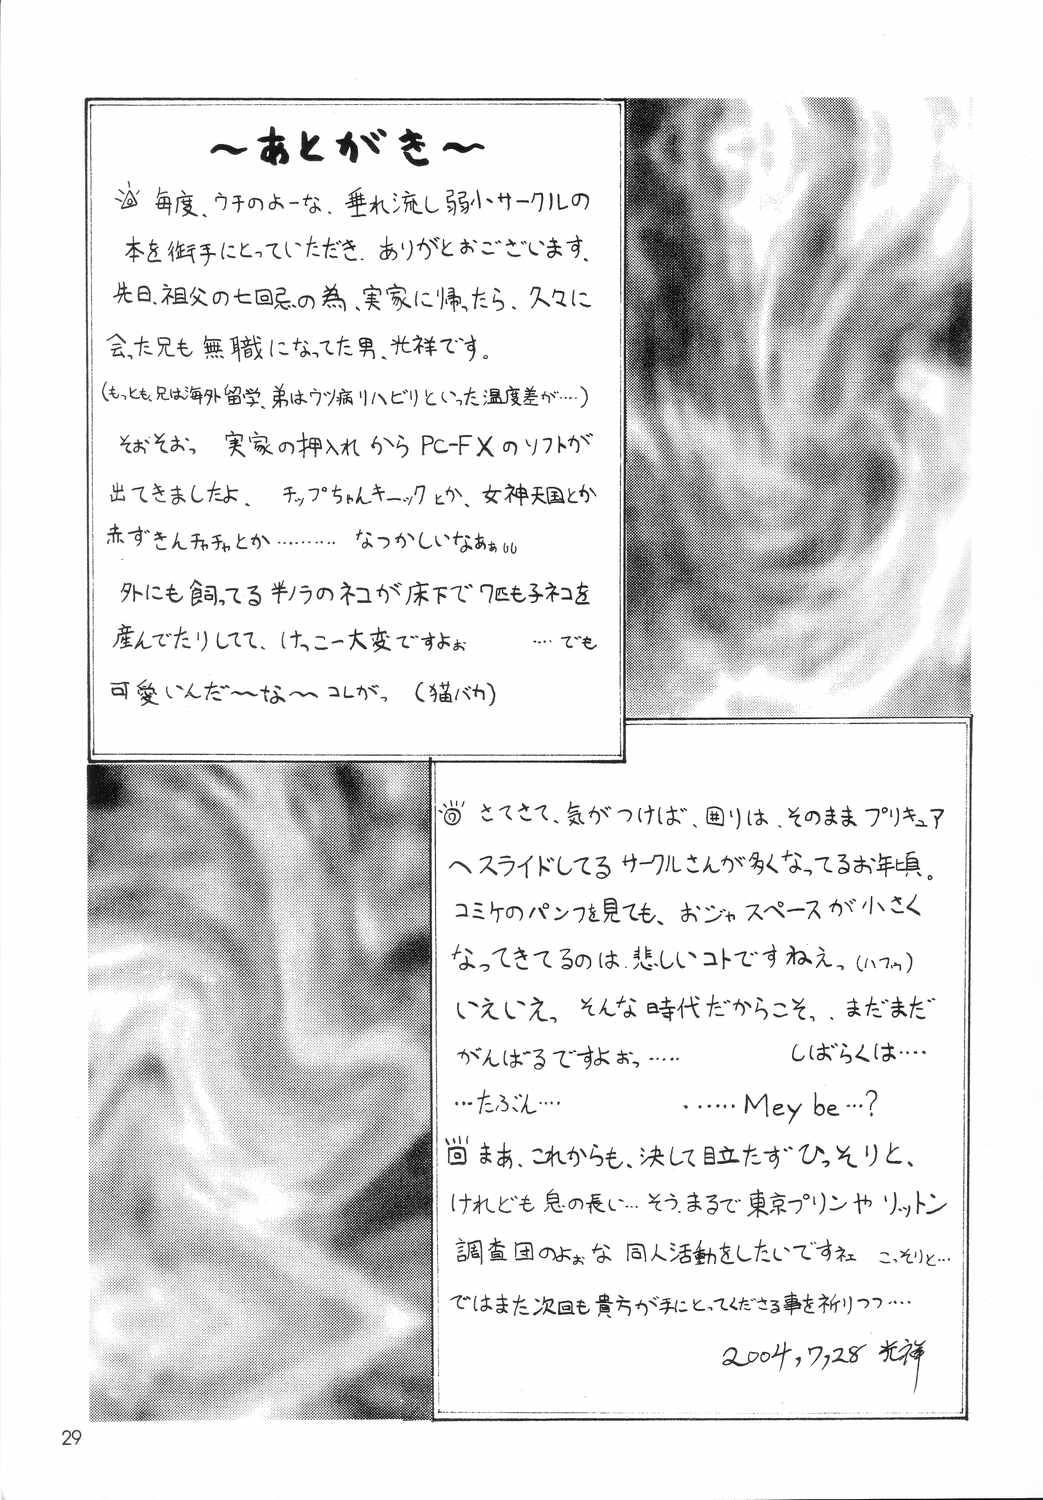 ～あとがき～
毎度、ウチのよーな、垂れ流し弱小サークルの
本を御手にとっていただき、ありがとおございます、
先日、祖父の七回忌の為、実家に帰ったら、久々に
会った兄も無職になってた男、光祥です。
(もっとも、兄は海外留学、弟はウツ病リハビリといった温度差が‥‥)
そおそおっ 実家の押入れからPC-FXのソフトが
出てきましたよ、 チップちゃんキーックとか、女神天国とか
赤ずきんチャチャとか‥‥‥‥‥ なつかしいなあぁ
外にも飼ってる半ノラのネコが床下で7匹も子ネコを
産んでたりしてて、けっこー大変ですよぉ ‥‥でも
可愛いんだ～な～コレがっ (猫バカ)
さてさて、気がつけば、囲りは、そのままプリキュア
へスライドしてるサークルさんが多くなってるお年頃。
コミケのパンフを見ても、おジャスペースが小さく
なってきてるのは、悲しいコトですねえっ(ハフゥ)
いえいえっ そんな時代だからこそっ、まだまだ
がんばるですよぉっ‥‥‥ しばらくは‥‥
‥‥たぶん‥‥ ‥‥‥‥Mey be‥‥?
まあ、これからも、決して目立たずひっそりと、
けれども息の長い‥‥そう、まるで東京プリンやリットン
調査団のよぉな同人活動をしたいですネェ こっそりと‥‥
ではまた次回も貴方が手にとってくださる事を祈りつつ‥‥
2004,7,28 光祥
29